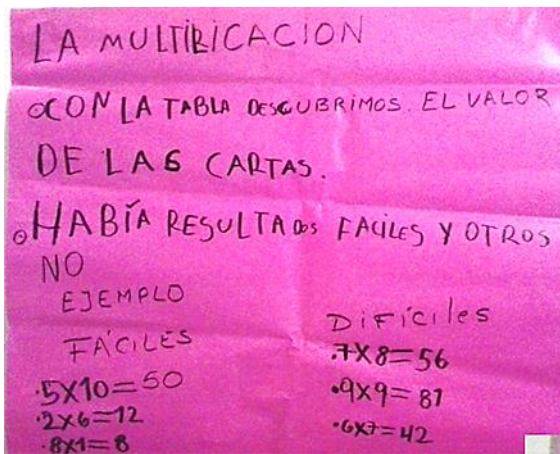 LA MULTIBICACION
CON LA TABLA DESCUBRIMOS. EL VALOR
DE LAS CARTAS.
HABÍA RESULTADOS FACILES Y OTROS
NO
EJEMPLO
FÁCILES
·5X10=50
·2X6=12
·8X1=8
DiFíCiles
·7X8=56
·9X9=81
·6X7=42